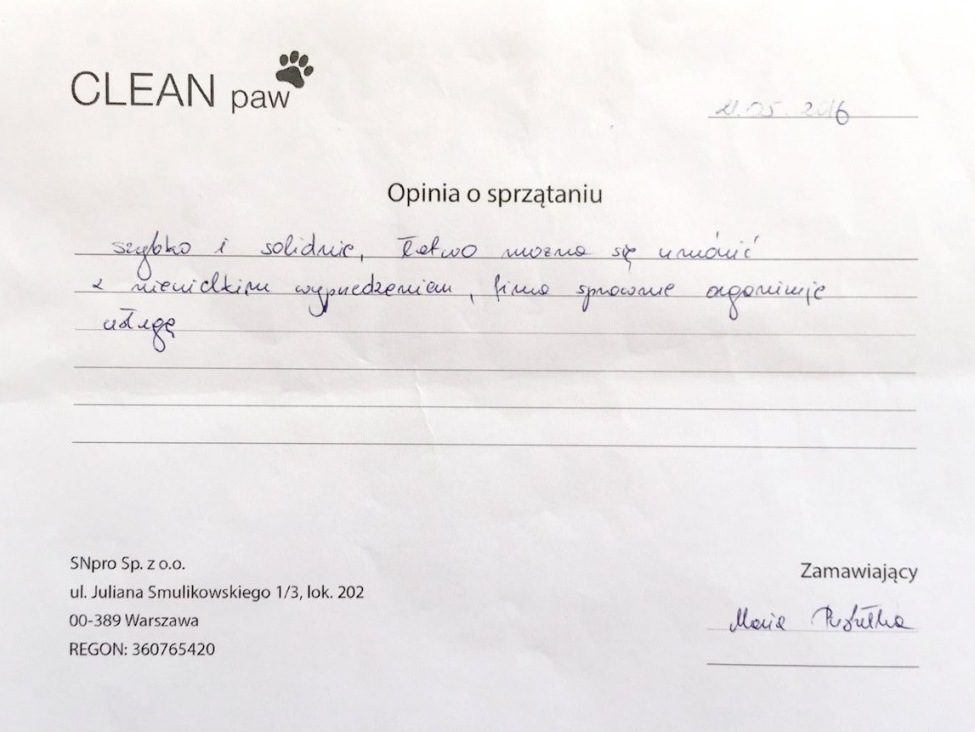 CLEAN paw
21.05.2016
Opinia o sprzątaniu
szybko i solidnie, łatwo można się umówić
z niewielkim wyprzedzeniem, firma sprawnie organizuje
usługę
SNpro Sp. z o.o.
ul. Juliana Smulikowskiego 1/3, lok. 202
00-389 Warszawa
REGON: 360765420
Zamawiający
Maria